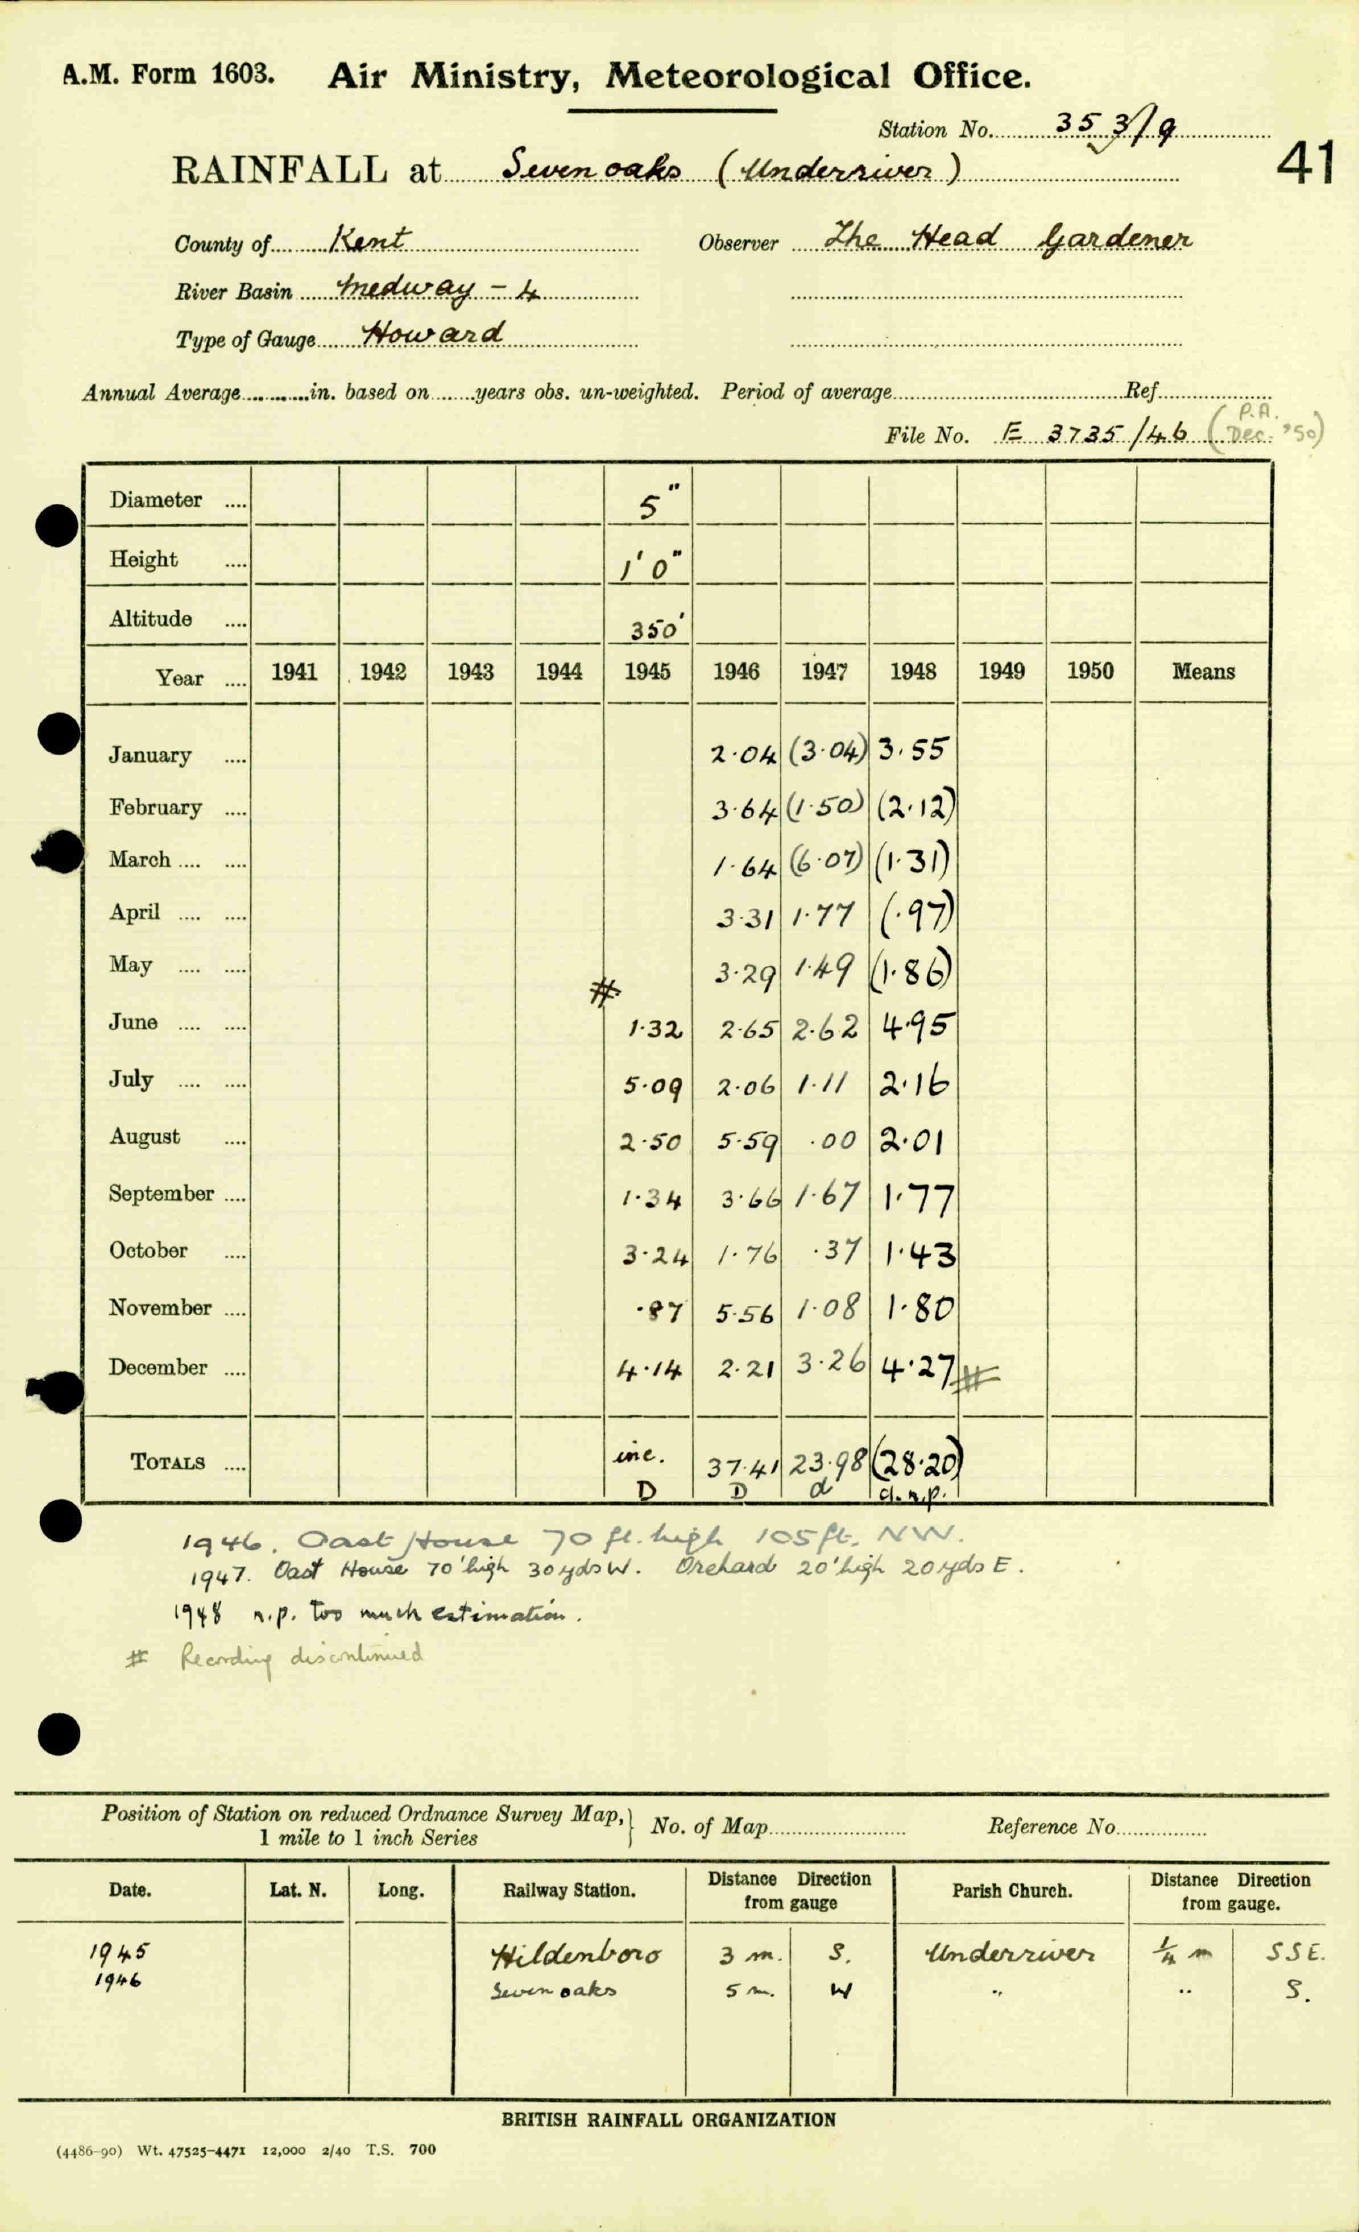 A.M. Form 1603. Air Ministry, Meteorological Office.
Station No. 353/9
41
RAINFALL at Sevenoaks (Underriver)
County of Kent Observer The Head Gardener
River Basin Medway - 4
Type of Gauge Howard
Annual Average in. based on years obs. un-weighted. Period of average Ref
File No. E 3735/46 (P.A. Dec. '50)
Diameter 5"
Height 1' 0"
Altitude 350'
Year 1941 1942 1943 1944 1945 1946 1947 1948 1949 1950 Means
January 2.04 (3.04) 3.55
February 3.64 (1.50) (2.12)
March 1.64 (6.07) (1.31)
April 3.31 1.77 (.97)
May 3.29 1.49 (1.86)
#
June 1.32 2.65 2.62 4.95
July 5.09 2.06 1.11 2.16
August 2.50 5.59 .00 2.01
September 1.34 3.66 1.67 1.77
October 3.24 1.76 .37 1.43
November .87 5.56 1.08 1.80
December 4.14 2.21 3.26 4.27 #
TOTALS inc. 37.41 23.98 (28.20)
D D d d. n.p.
1946. Oast House 70 ft. high 105 ft. NW.
1947. Oast House 70' high 30 yds W. Orchard 20' high 20 yds E.
1948 n.p. too much estimation.
# Recording discontinued
Position of Station on reduced Ordnance Survey Map, 1 mile to 1 inch Series } No. of Map Reference No.
Date. Lat. N. Long. Railway Station. Distance Direction from gauge Parish Church. Distance Direction from gauge.
1945 Hildenboro 3 m. S. Underriver 1/4 m SSE.
1946 Sevenoaks 5 m. W " " S.
BRITISH RAINFALL ORGANIZATION
(4486-90) Wt. 47525-4471 12,000 2/40 T.S. 700